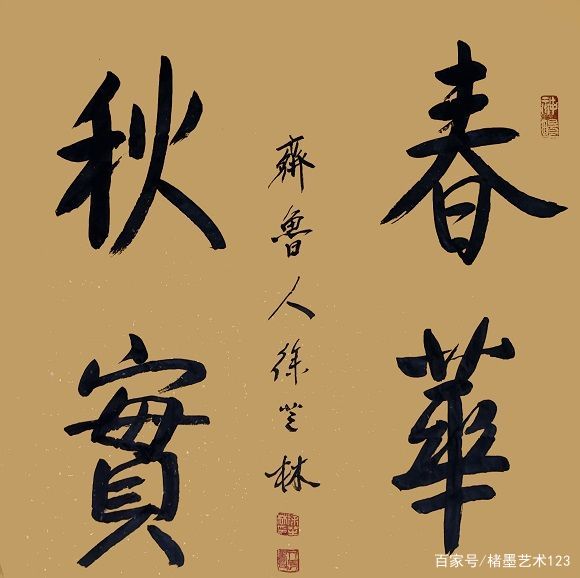 春華
秋實
齊魯人徐林
百家号/楮墨艺术123